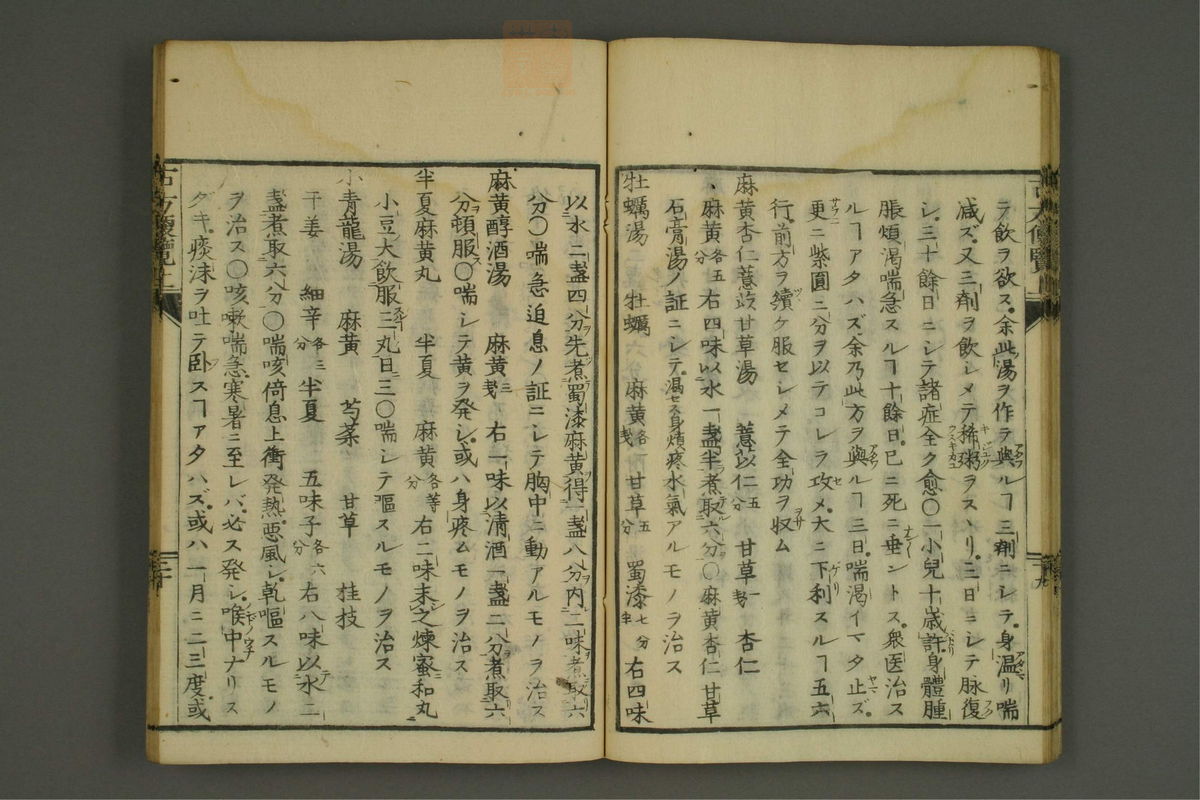 ラ飲ヲ欲ス。余此湯ヲ作ラ與ルヿ三劑ニシテ。身温リ喘
減ズ。又三劑ヲ飲シメテ稀粥ヲスヽリ。三日ニシテ脉復
シ。三十餘日ニシテ諸症全ク愈〇一小兒十歳許。身體腫
脹煩渇喘急スルヿ十餘日。已ニ死ニ垂ントス。衆医治ス
ルヿアタハズ。余乃此方ヲ與ルヿ三日。喘渇イマタ止ズ。
更ニ紫圓二分ヲ以テコレヲ攻メ。大ニ下利スルヿ五六
行。前方ヲ續ケ服セシメテ全功ヲ収ム
麻黄杏仁薏苡甘草湯 薏苡仁五分 甘草一戔 杏仁
麻黄各五分 右四味以水一盞半煮取六分〇麻黄杏仁甘草
石膏湯ノ証ニシテ。渇セス身煩疼水氣アルモノヲ治ス
牡蠣湯 牡蠣 麻黄各戔 甘草五分 蜀漆七分半 右四味
以水二盞四分先煮蜀漆麻黄得一盞八分内二味煮取六
分〇喘急迫息ノ証ニシテ胸中ニ動アルモノヲ治ス
麻黄醇酒湯 麻黄三戔 右一味以清酒一盞二分煮取六
分頓服〇喘シテ黄ヲ発シ。或ハ身疼ムモノヲ治ス
半夏麻黄丸 半夏 麻黄各等分 右二味末之煉蜜和丸
小豆大飲服三丸日三〇喘シテ嘔スルモノヲ治ス
小青龍湯 麻黄 芍薬 甘草 桂枝
干姜 細辛各三分 半夏 五味子各六分 右八味以水二
盞煮取六分〇喘咳倚息上衝発熱。悪風シ。乾嘔スルモノ
ヲ治ス〇咳嗽喘急寒暑ニ至レバ。必ス発シ。喉中ナリス
ダキ。痰沫ヲ吐テ卧スヿアタハズ。或ハ一月ニ二三度。或